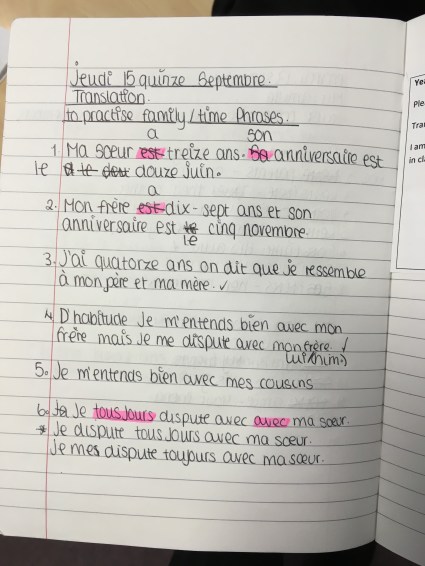 Jeudi 15 quinze Septembre.
Translation.
to practise family/time Phrases.
a son
1. Ma sœur est treize ans. Sa anniversaire est
le douze juin.
a
2. Mon frère est dix-sept ans et son
anniversaire est te cinq novembre.
le
3. J'ai quatorze ans on dit que je ressemble
à mon père et ma mère. ✓
4. D'habitude Je m'entends bien avec mon
frère mais Je me dispute avec mon frère. ✓
lui (him)
5. Je m'entends bien avec mes cousins
6. Je tousJours dispute avec avec ma sœur.
* Je dispute tousJours avec ma sœur.
Je mes dispute toujours avec ma sœur.
Ye
Ple
Tra
I am
in cl